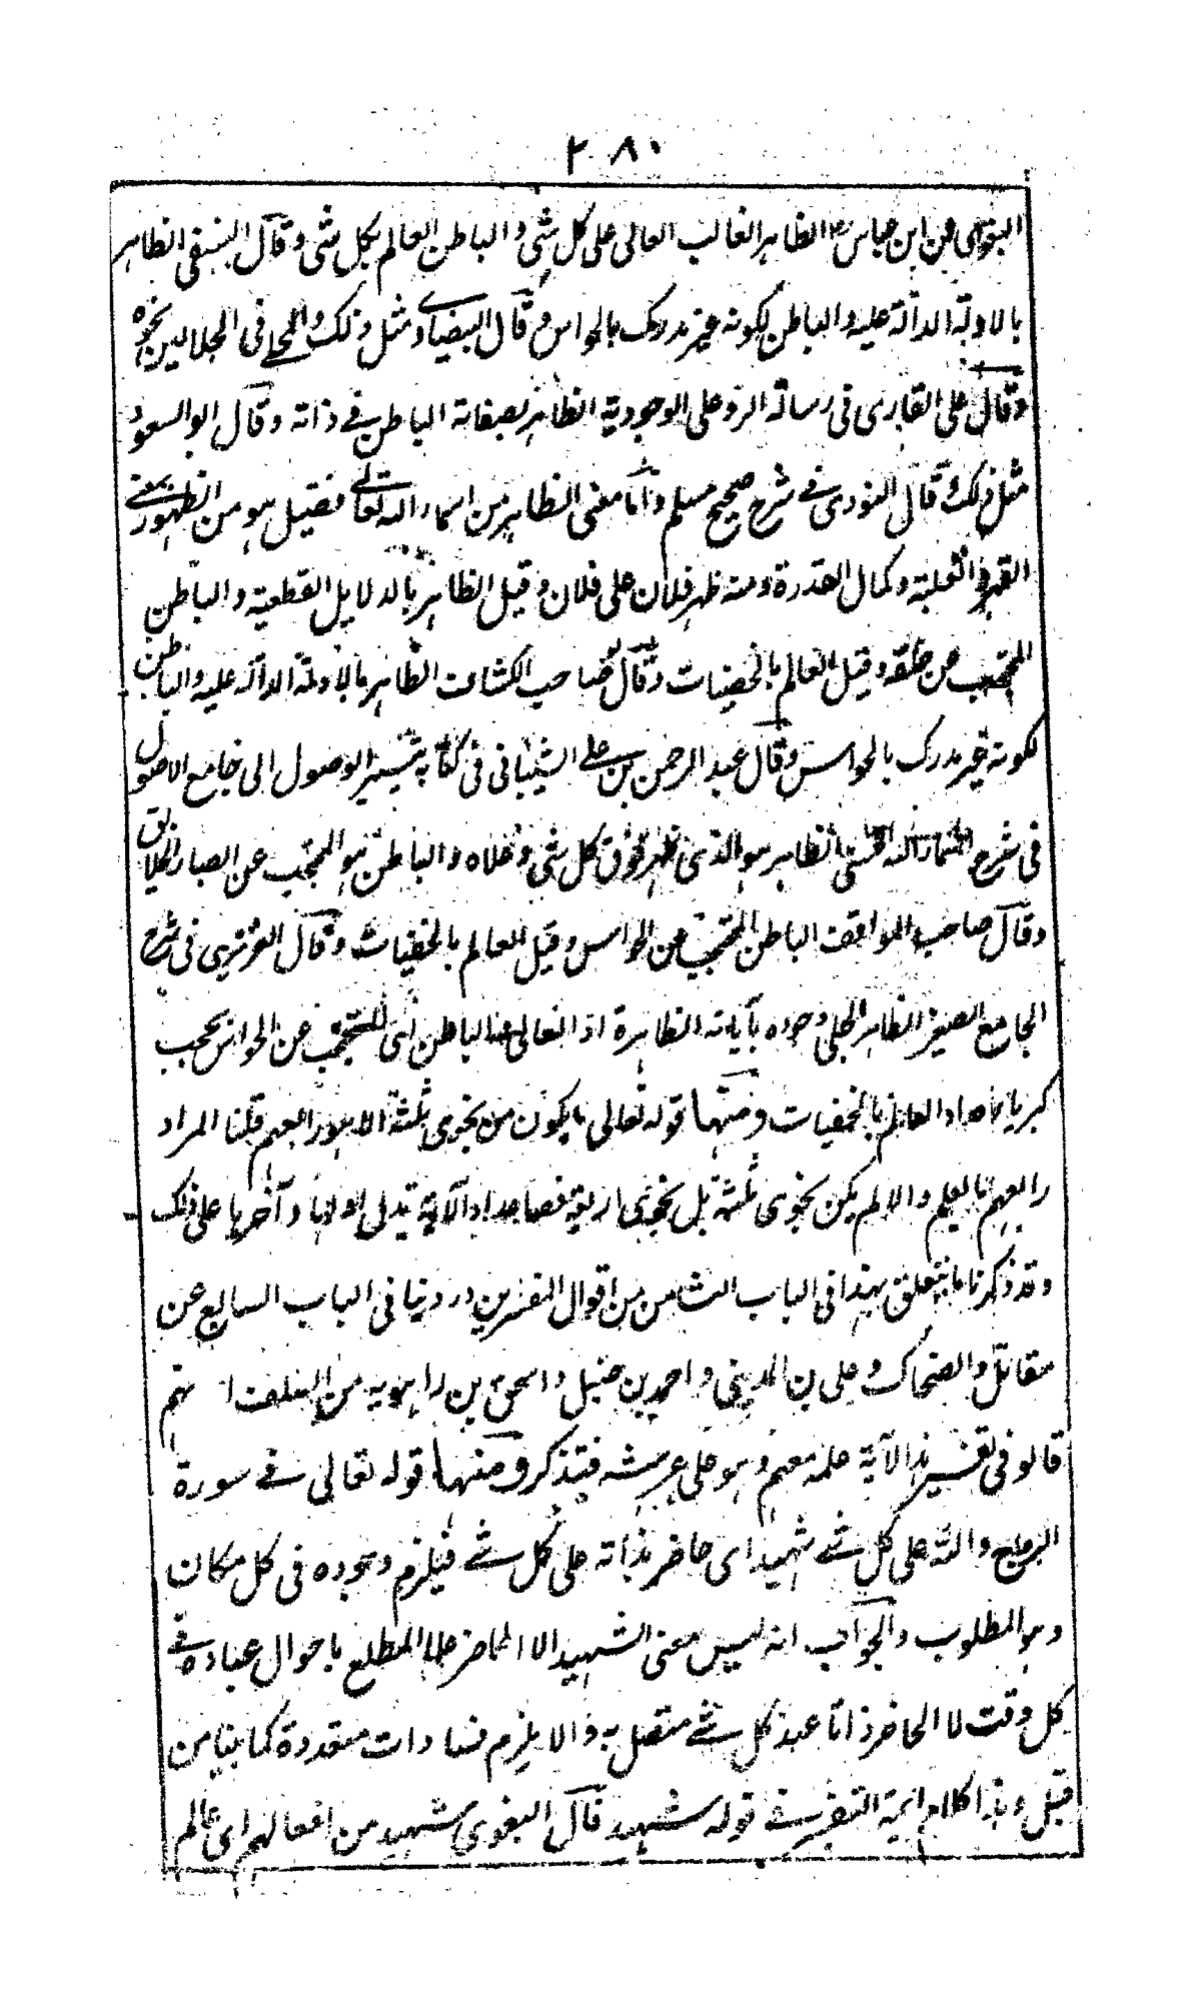 ٢٨٠
البغوى عن ابن عباس الظاهر الغالب العالى على كل شئ والباطن العالم بكل شئ وقال النسفى الظاهر
بالادلة الدالة عليه والباطن لكونه غير مدرك بالحواس وقال البيضاوى مثل ذلك والمحلى فى الجلالين نحوه
وقال على القارى فى رسالة الرد على الوجودية الظاهر بصفاته الباطن فى ذاته وقال ابو السعود
مثل ذلك وقال النووى فى شرح صحيح مسلم واما معنى الظاهر من اسماء الله تعالى فقيل هو من الظهور بمعنى
القهر والغلبة وكمال القدرة ومنه ظهر فلان على فلان وقيل الظاهر بالدلايل القطعية والباطن
المحتجب عن خلقه وقيل العالم بالخفيات وقال صاحب الكشاف الظاهر بالادلة الدالة عليه والباطن
لكونه غير مدرك بالحواس وقال عبد الرحمن بن على الشيبانى فى كتابه تيسير الوصول الى جامع الاصول
فى شرح اسماء الله الحسنى الظاهر هو الذى ظهر فوق كل شئ وعلاه والباطن هو المحتجب عن ابصار الخلايق
وقال صاحب المواقف الباطن المحتجب عن الحواس وقيل العالم بالخفيات وقال العزيزى فى شرح
الجامع الصغير الظاهر الجلى وجوده بآياته الظاهرة او العالى الباطن اى المحتجب عن الحواس بحجب
كبريائه او العالم بالخفيات ومنها قوله تعالى ما يكون من نجوى ثلثة الا هو رابعهم قلنا المراد
رابعهم بالعلم والا لم يكن نجوى ثلثة بل نجوى اربعة فصاعدا والآية تدل اولها وآخرها على ذلك
وقد ذكرنا ما يتعلق بهذا فى الباب الثامن من اقوال المفسرين وروينا فى الباب السابع عن
مقاتل والضحاك وعلى بن المدينى واحمد بن حنبل واسحق بن راهويه من السلف انهم
قالو فى تفسير هذا الآية علمه معهم وهو على عرشه فتذكر ومنها قوله تعالى فى سورة
البروج والله على كل شئ شهيد اى حاضر بذاته على كل شئ فيلزم وجوده فى كل مكان
وهو المطلوب والجواب انه ليس معنى الشهيد الا الحاضر علما المطلع باحوال عباده فى
كل وقت لا الحاضر ذاتا عند كل شئ متصل به والا يلزم فسادات متعددة كما بينا من
قبل وهذا كلام ايمة التفسير فى قوله شهيد قال البغوى شهيد من افعالهم اى عالم